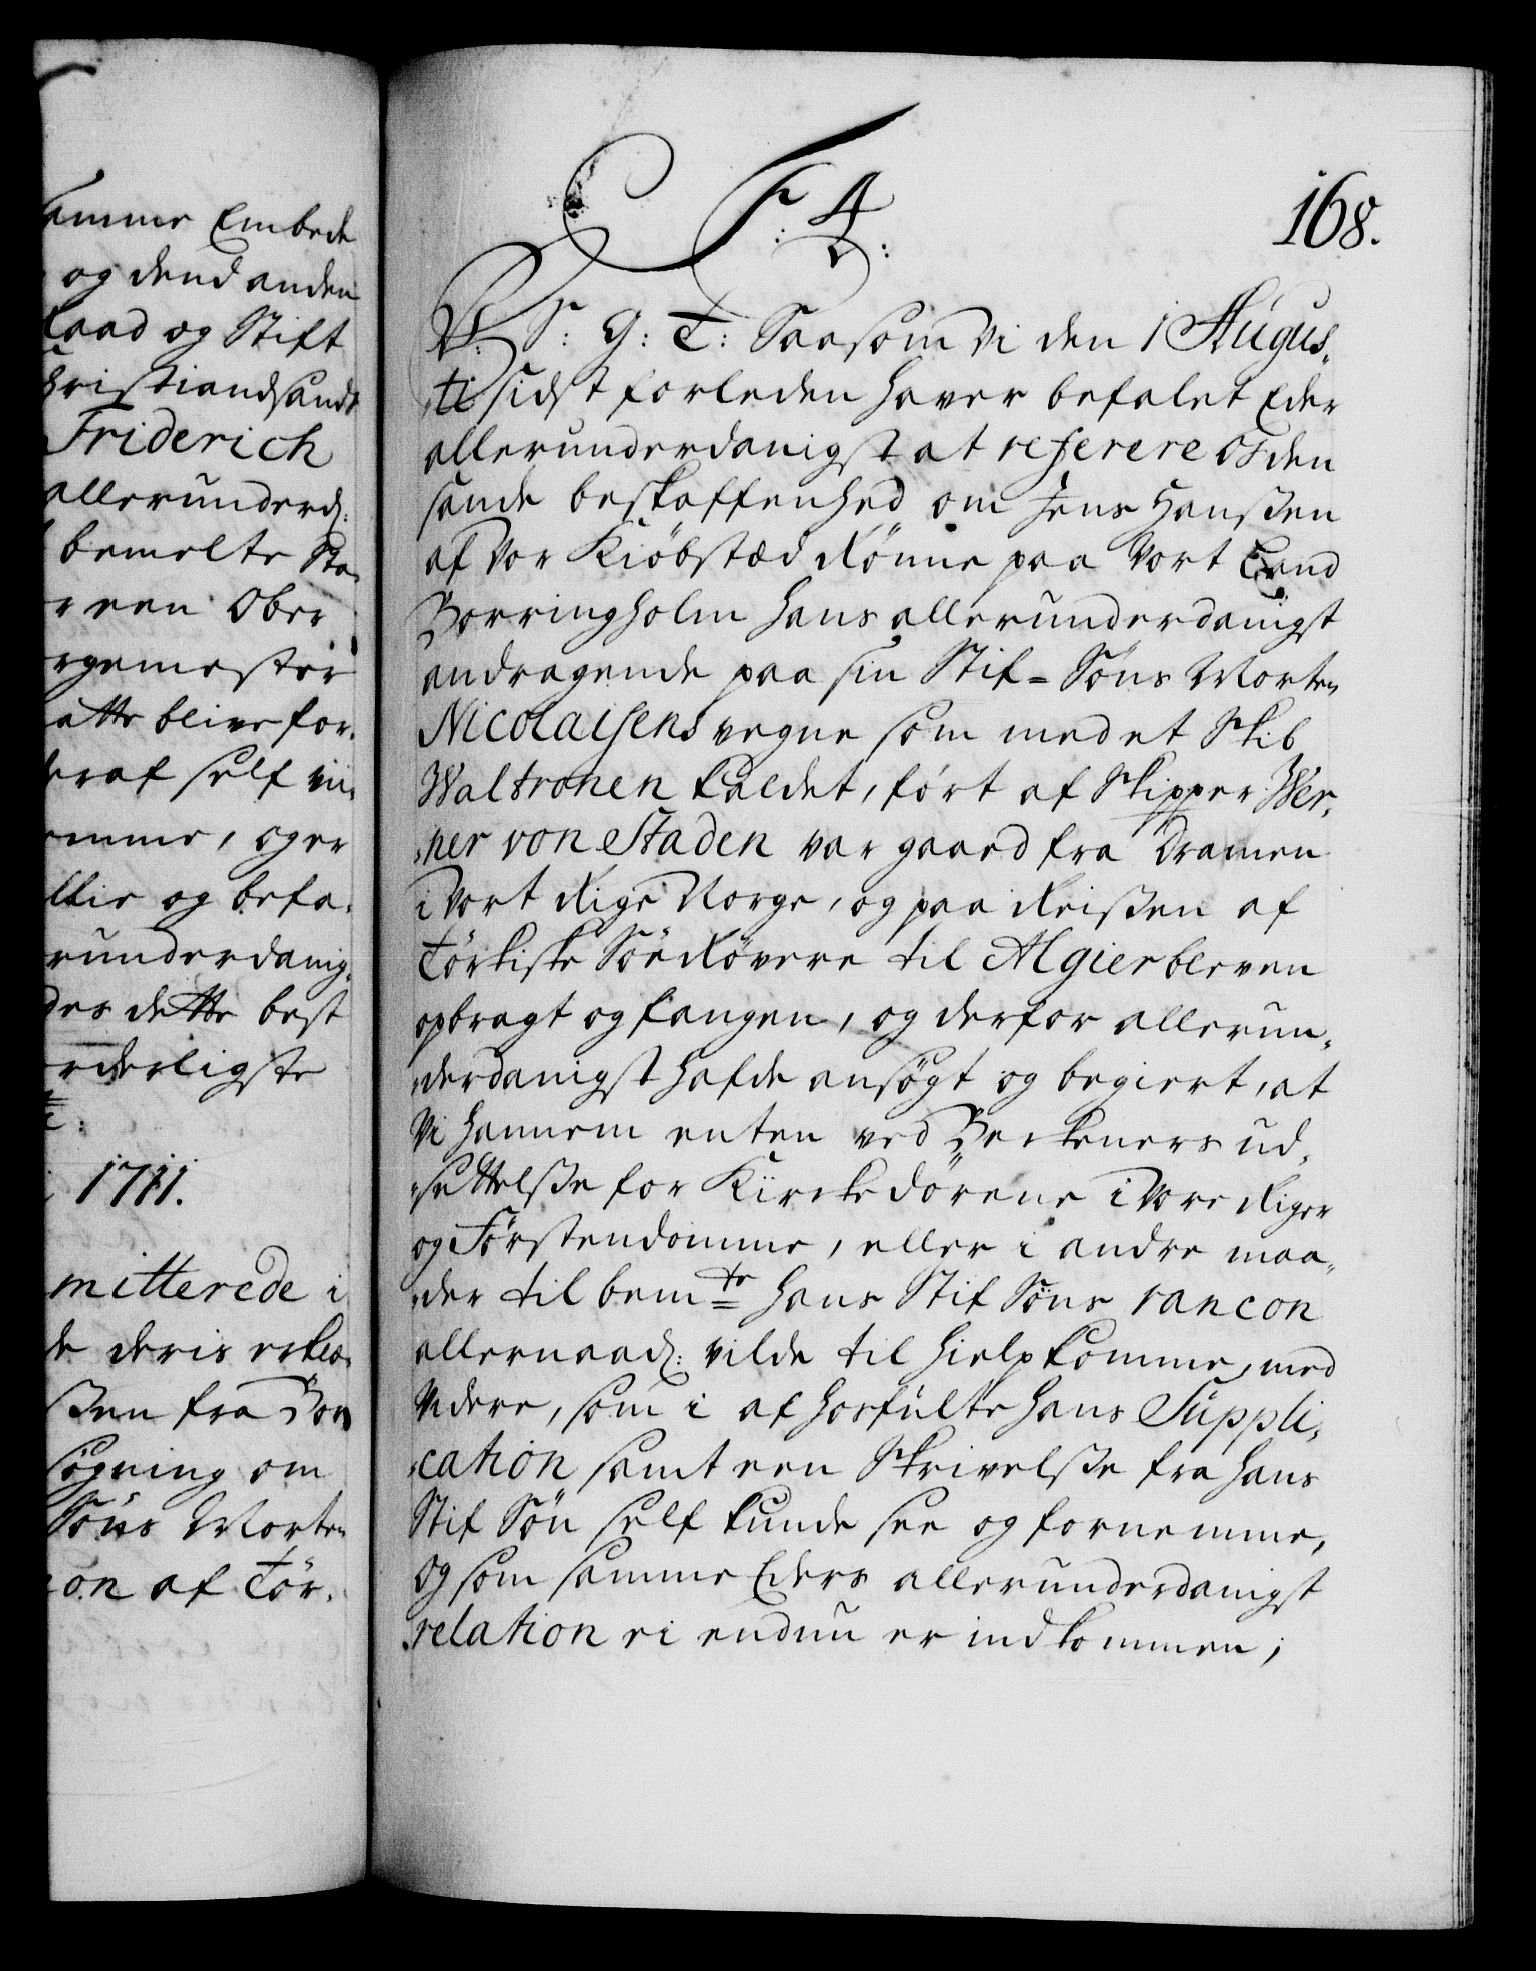 amme Embede
og dend anden
raad og Stift
Christiandsands
Friderich
allerunderd:
bemelte Sta,,
een Ober
rgemester
atte blive for,,
eraf self vii,,
omme, og er
ltie og befa,,
runderdanig,,
des dette best
rderligste
1711.
mitterede i
de deris erklæ,,
ßen fra Bor
søgning om
Søns Morten
on af Tör,,
F. 4.
168.
V: S: G: T: Saasom Vi den 1 Augus,,
,,ti sidst forleden haver befalet Eder
allerunderdanigst at referere Os den
sande beskaffenhed om Jens Hanßen
af Vor Kiöbstæd Rönne paa Vort Land
Borringholm hans allerunderdanigst
andragende paa sin Stif=Söns Morten
Nicolaisens vegne som med et Skib
Waltronen kaldet, fört af Skipper Wer,,
,,ner von Staden var gaaed fra Dramen
i Vort Rige Norge, og paa Reißen af
Törkiske Söe Røvere til Algier bleven
opbragt og fangen, og derfor allerun,,
,,derdanigst hafde ansøgt og begiert, at
Vi hannem enten ved Beckeners ud,,
,,settelße for Kirckedörene i Vore Riger
og Förstendomme, eller i andre maa,,
,,der til bemte hans Stif Söns rancon
allernaad: vilde til hielp komme, med
Videre, som i af hosfulte hans Suppli,,
,,cation samt een Skrivelße fra hans
Stif Sön self kunde see og fornemme,
Og som samme Eders allerunderdanigst
relation ei endnu er indkommen;